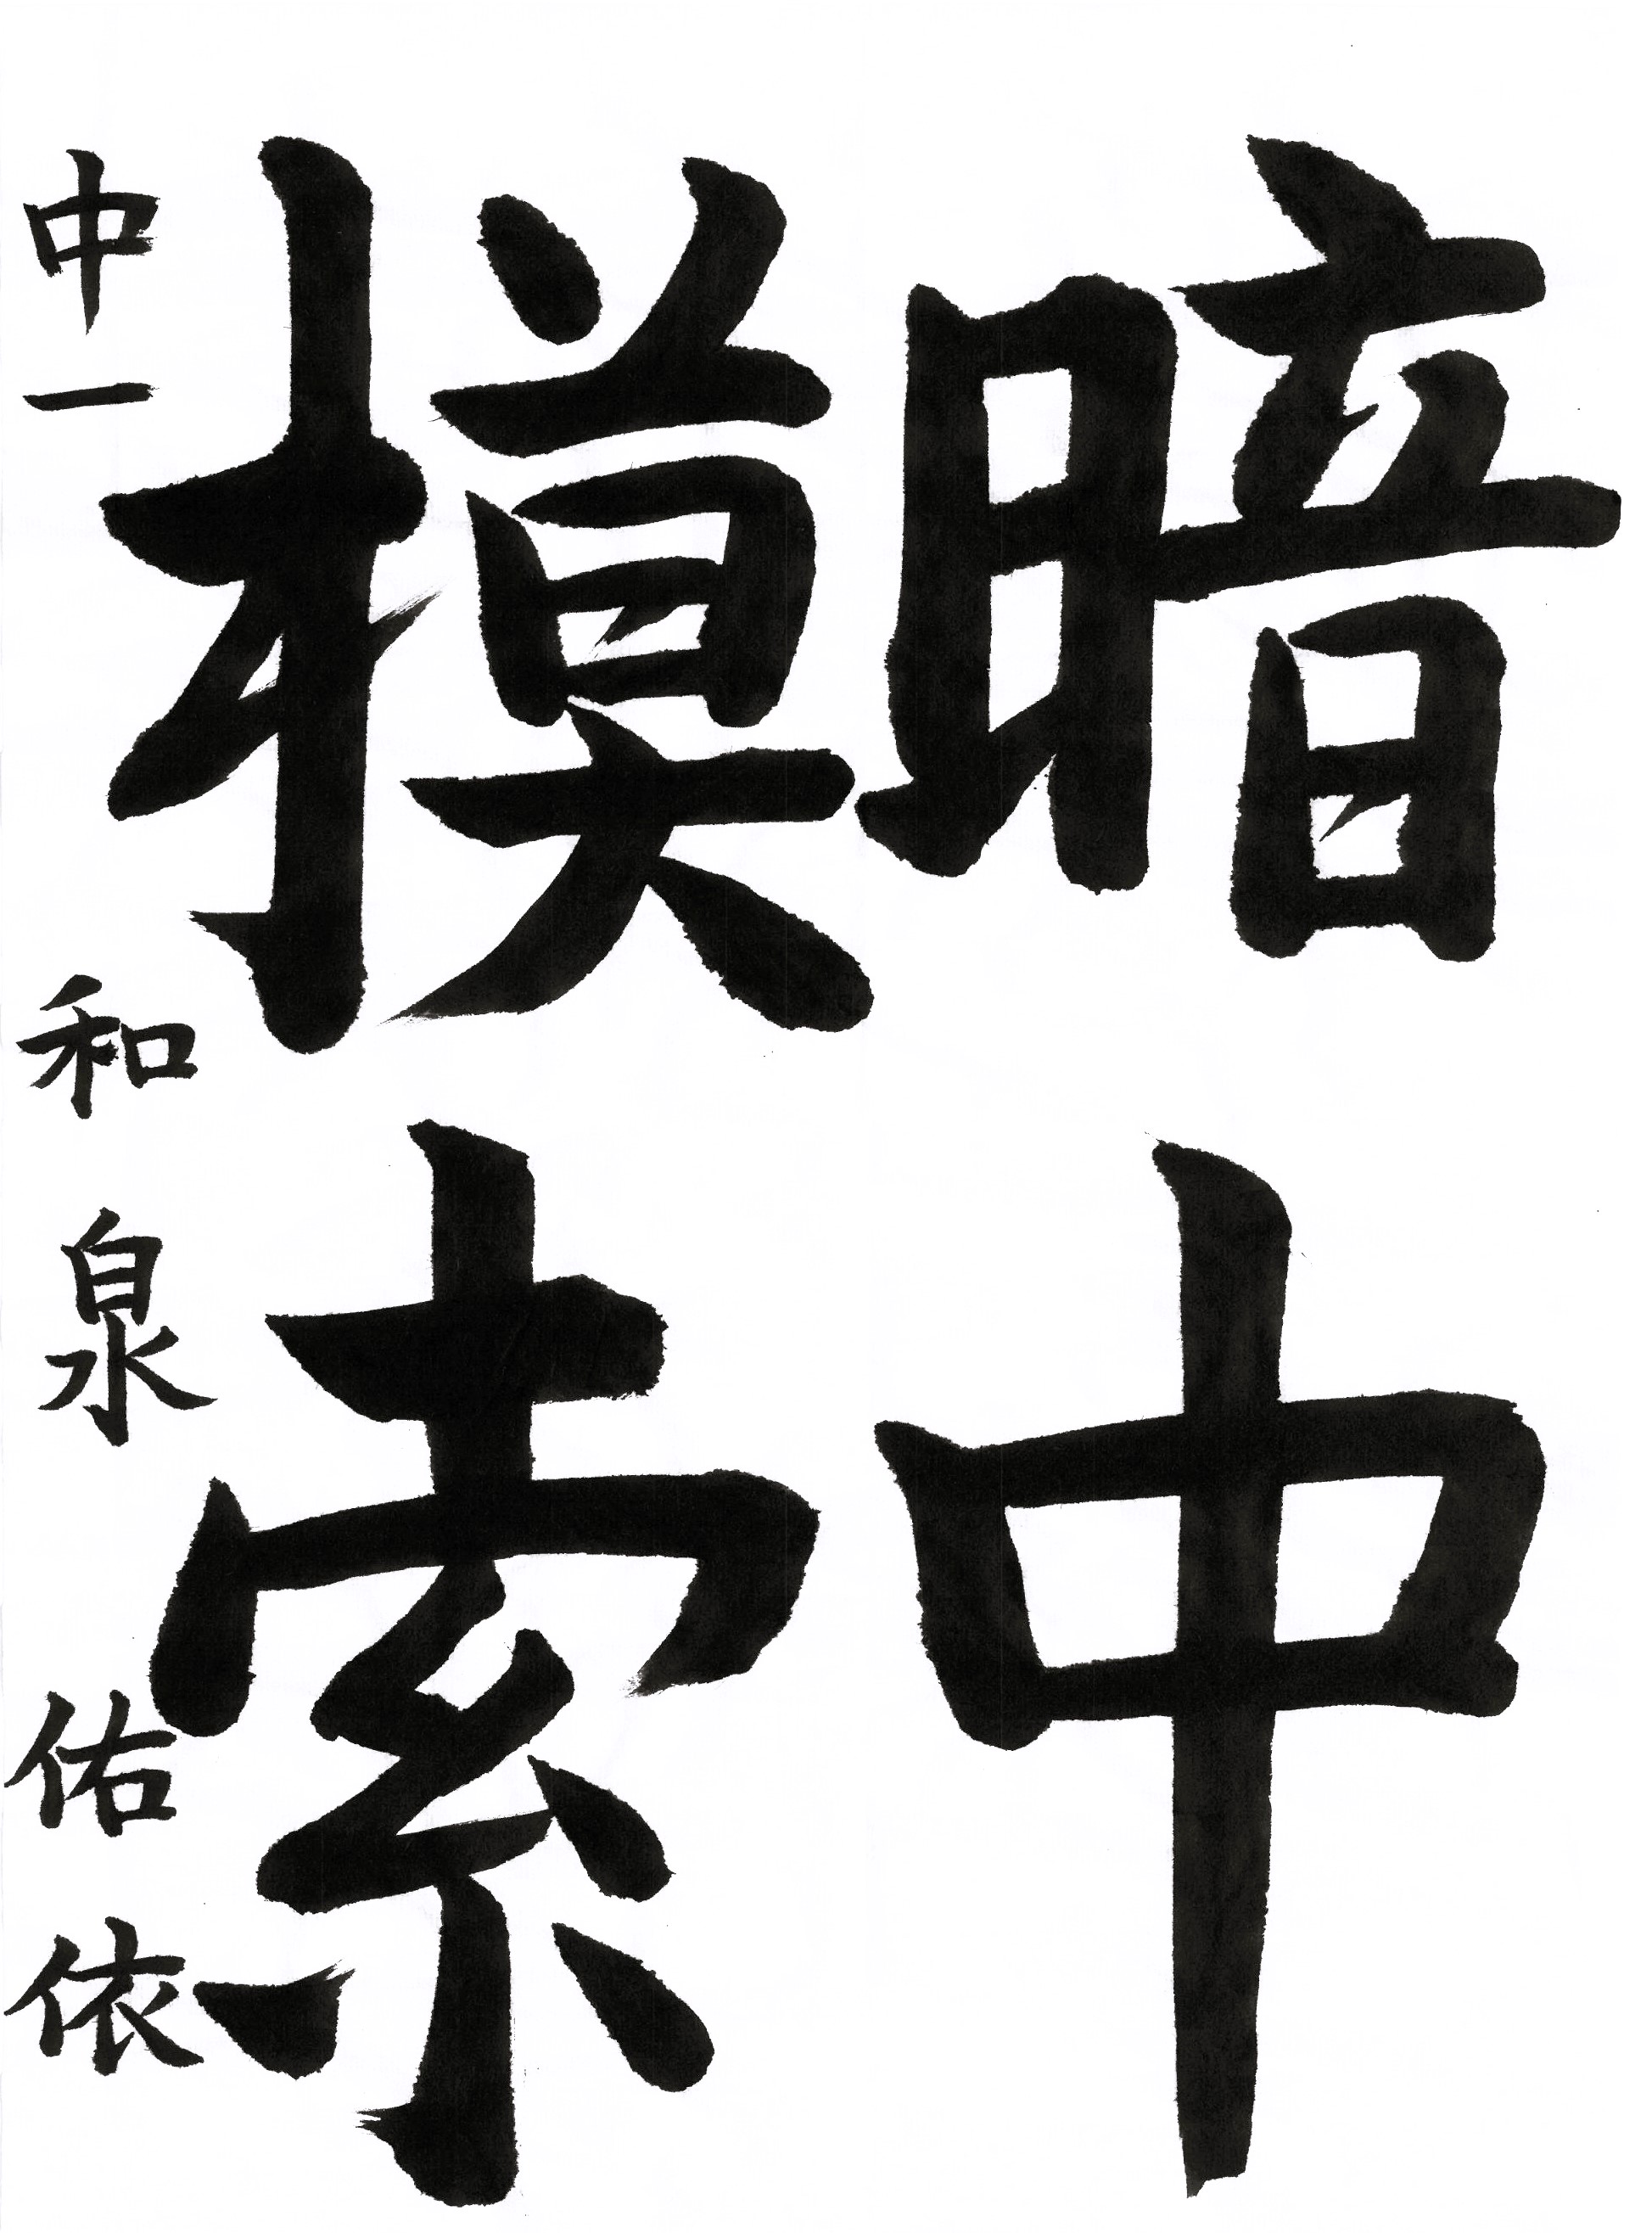 暗中
模索
中一 和泉佑依